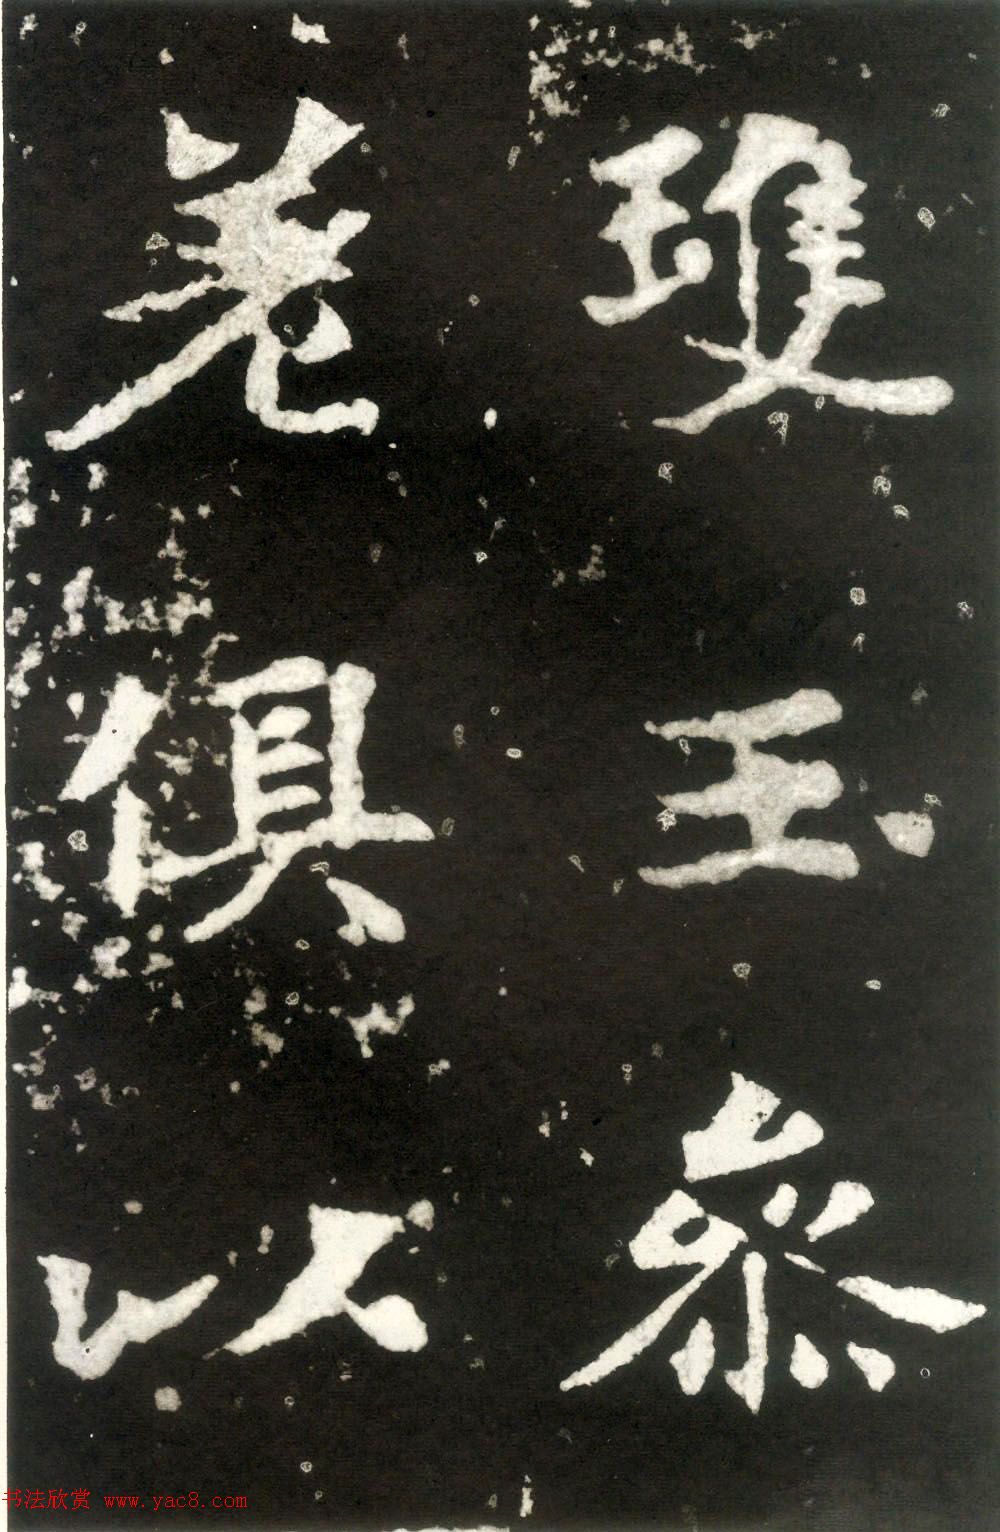 玉叅
差俱以
书法欣赏 www.yac8.com